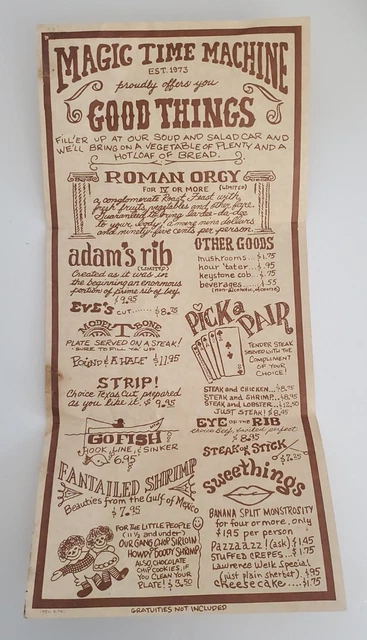 MAGIC TIME MACHINE
EST. 1973
proudly offers you
GOOD THINGS
FILL'ER UP AT OUR SOUP AND SALAD CAR AND
WE'LL BRING ON A VEGETABLE OF PLENTY AND A
HOT LOAF OF BREAD.
ROMAN ORGY
FOR IV OR MORE (LIMITED)
a conglomerate Roast Feast with
fresh fruits, vegetables and other fare.
Guaranteed to bring lar-dee-da-dee
to your body, a mere nine dollars
and ninety-five cents per person.
adam's rib
(LIMITED)
Created as it was in
the beginning an enormous
portion of prime rib of beef.
$9.95
EVE'S CUT...... $8.75
MODEL T BONE
PLATE SERVED ON A STEAK!
"SURE TO FILL 'YA' UP"
POUND & A HALF $11.95
STRIP!
Choice Texas Cut prepared
as you like it. $9.95
GO FISH
HOOK, LINE, & SINKER
6.95
FANTAILED SHRIMP
Beauties from the Gulf of Mexico
$7.95
FOR THE LITTLE PEOPLE
(11 1/2 and under)
OUR GANG CHOP SIRLOIN
HOWDY DOODY SHRIMP
ALSO, CHOCOLATE
CHIP COOKIES, IF
YOU CLEAN YOUR
PLATE! $3.50
OTHER GOODS
mushrooms.... $1.75
hour 'tater... .95
keystone cob.. .75
beverages...... .55
(non-alcoholic, of course)
PICK A PAIR
TENDER STEAK
SERVED WITH THE
COMPLIMENT
OF YOUR
CHOICE!
STEAK AND CHICKEN...$8.75
STEAK AND SHRIMP...$8.95
STEAK AND LOBSTER...$12.50
JUST STEAK! $8.45
EYE OF THE RIB
choice beef, broiled perfect
$8.95
STEAK ON STICK
$7.25
Sweethings
BANANA SPLIT MONSTROSITY
for four or more, only
$1.95 per person
Pazzazz! (ask) $1.45
STUFFED CREPES... $1.75
Lawrence Welk Special
(just plain sherbet) $.95
cheesecake.....$1.75
GRATUITIES NOT INCLUDED